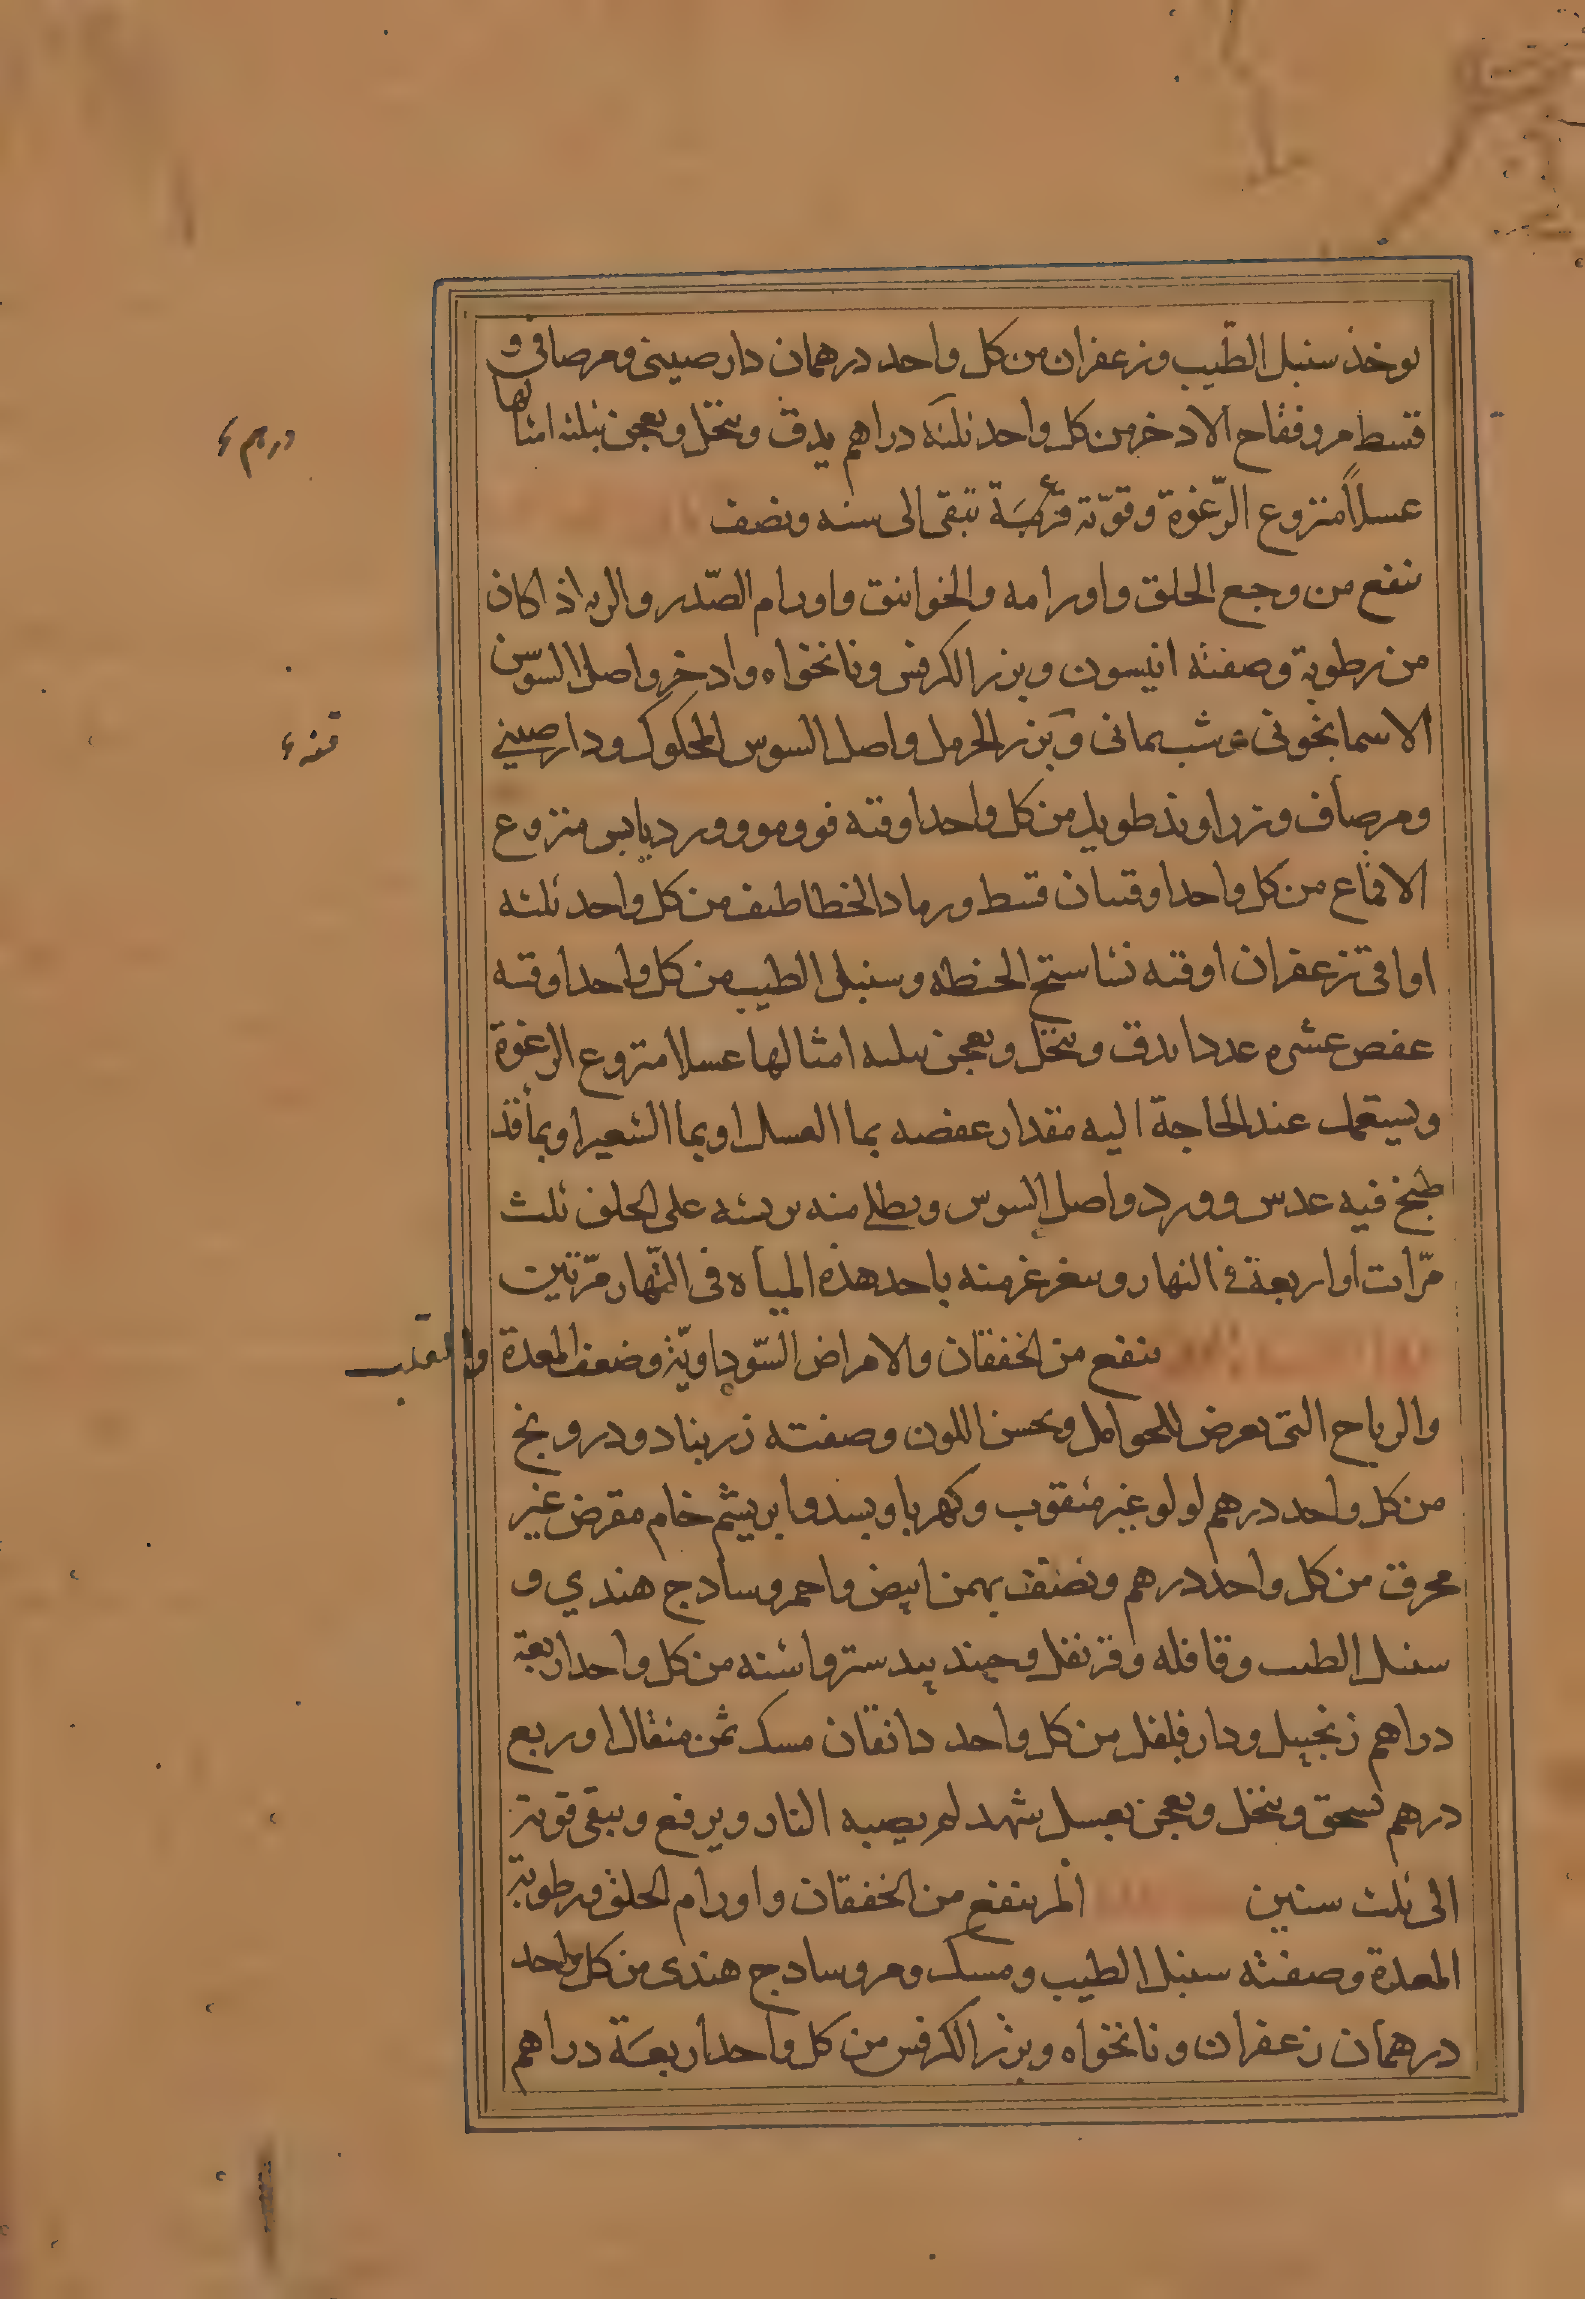 يوخذ سنبل الطيب وزعفران من كل واحد درهمان دار صيني ومر صافي و
قسط مر وفقاح الادخر من كل واحد ثلثه دراهم يدق وينخل ويعجن بثلثه امثالها
درهم
عسلاً منزوع الرّغوة وقوّته تبقى الى سنه ونصف
ينفع من وجع الحلق واورامه والخوانيق واورام الصّدر والريه اذا كان
من رطوبة وصفته انيسون وبزر الكرفس ونانخواه وادخر واصل السوسن
الاسمانجوني وشب يماني وبزر الحرمل واصل السوس المحكوك ودار صيني
ومر صاف وزراوند طويل من كل واحد اوقيه فو ومو وورد يابس منزوع
الاقماع من كل واحد اوقيتان قسط ورماد الخطاطيف من كل واحد ثلثه
اواقي زعفران اوقيه نشاستج الحنطه وسنبل الطيب من كل واحد اوقيه
عفص عشره عددا يدق وينخل ويعجن بثلثه امثالها عسلا منزوع الرغوة
ويستعمل عند الحاجة اليه مقدار عفصه بما العسل او بما الشعير او بما قد
طبخ فيه عدس وورد واصل السوس ويطلى منه بريشه على الحلق ثلث
مرّات او اربعة في النهار ويتغرغر منه باحد هذه المياه في النّهار مرّتين
ينفع من الخفقان والامراض السّوداويّة وضعف المعدة والقلب
والرياح التي تعرض للحوامل ويحسن اللون وصفته زرنباد ودرونج
من كل واحد درهم لولو غير مثقوب وكهربا وبسد وابريشم خام مقرض غير
محرق من كل واحد درهم ونصف بهمن ابيض واحمر وسادج هندي و
سنبل الطيب وقاقله وقرنفل وجند بيدستر واشنه من كل واحد اربعة
دراهم زنجبيل ودار فلفل من كل واحد دانقان مسك ثمن مثقال او ربع
درهم يسحق وينخل ويعجن بعسل شهد لم يصبه النار ويرفع ويبقى قوته
الى ثلث سنين المر ينفع من الخفقان واورام الحلق ورطوبة
المعدة وصفته سنبل الطيب ومسك ومر وسادج هندى من كل واحد
درهمان زعفران ونانخواه وبزر الكرفس من كل واحد اربعة دراهم